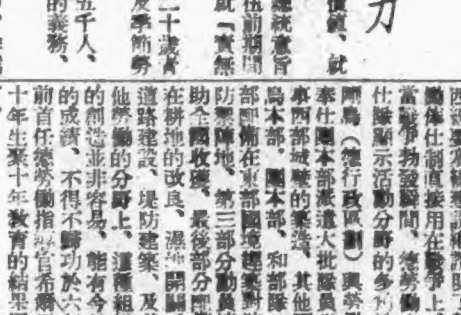 力
價値、就
總統意旨
伍前期間
就「實無
二十歲青
及季節勞
五千人、
的義務、
仕制直接用在戰爭上
當戰爭勃發瞬間、德勞働
仕隊顯示活動分野的多方
剛島（總行政區劃）與勞
奉仕團本部派遣大批隊員
事西部城壁的築造、其他
島本部、團本部、和部隊
部準備在東部國境建築對
防禦陣地、第三部分動員
助全國收獲、最後部分
在耕地的改良、濕地開闢
道路建設、堤防建築、及
他勞働的分野上、這種組
的創造並非容易、能有今
的成績、不得不歸功於六
前首任德勞働指導官布爾
十年生聚十年教育的結果